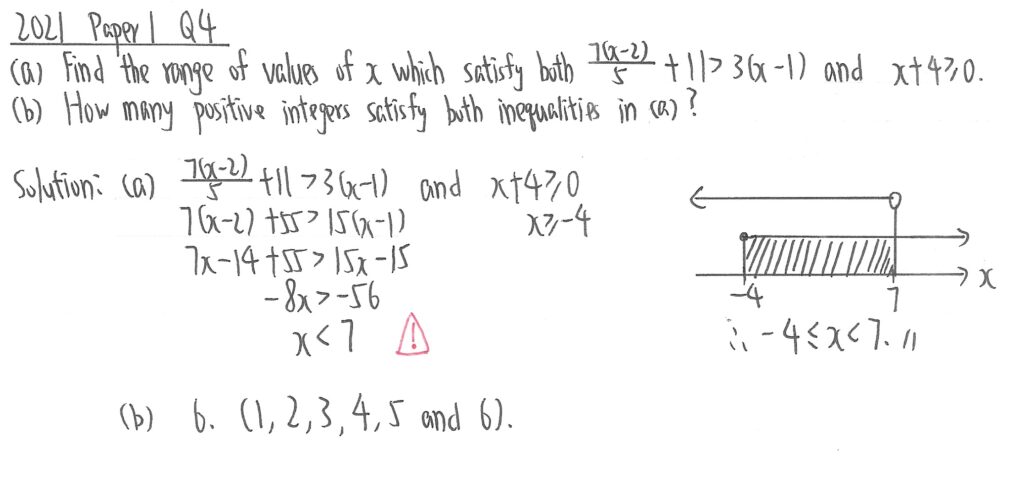 2021 Paper 1 Q4
(a) Find the range of values of x which satisfy both 7(x-2)/5 + 11 > 3(x-1) and x+4≥0.
(b) How many positive integers satisfy both inequalities in (a)?
Solution: (a) 7(x-2)/5 + 11 > 3(x-1) and x+4≥0
7(x-2) + 55 > 15(x-1) x≥-4
7x-14+55 > 15x-15
-8x > -56
x < 7 !
-4 7 x
∴ -4 ≤ x < 7. //
(b) 6. (1, 2, 3, 4, 5 and 6).